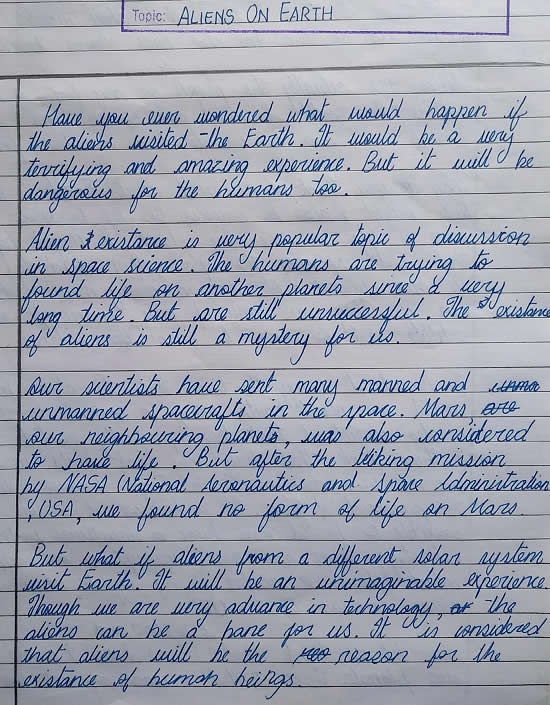 Topic: ALIENS ON EARTH
Have you ever wondered what would happen if
the aliens visited the Earth. It would be a very
terrifying and amazing experience. But it will be
dangerous for the humans too.
Alien existance is very popular topic of discussion
in space science. The humans are trying to
found life on another planets since a very
long time. But are still unsuccessful. The existance
of aliens is still a mystery for us.
Our scientists have sent many manned and
unmanned spacecrafts in the space. Mars are
our neighbouring planets, was also considered
to have life. But after the Viking mission
by NASA (National Aeronautics and Space Administration
, USA, we found no form of life on Mars.
But what if aliens from a different solar system
visit Earth. It will be an unimaginable experience.
Though we are very advance in technology, the
aliens can be a bane for us. It is considered
that aliens will be the reason for the
existance of human beings.